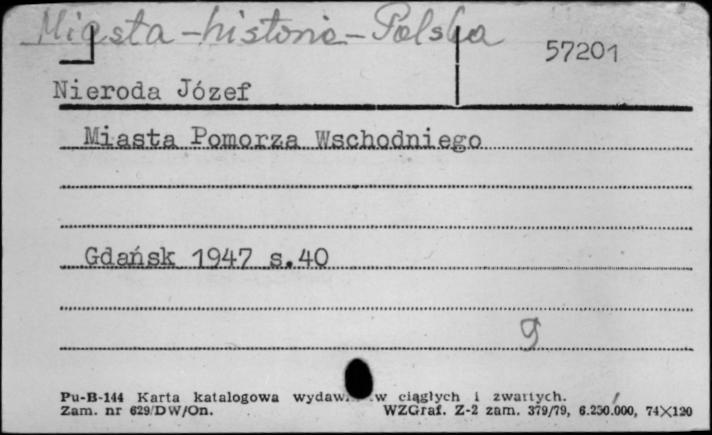 Miasta - historia - Polska
57201
Nieroda Józef
Miasta Pomorza Wschodniego
Gdańsk 1947 s.40
g
Pu-B-144 Karta katalogowa ciągłych i zwartych.
Zam. nr 629/DW/On. WZGraf. Z-2 zam. 379/79, 6.250.000, 74X120